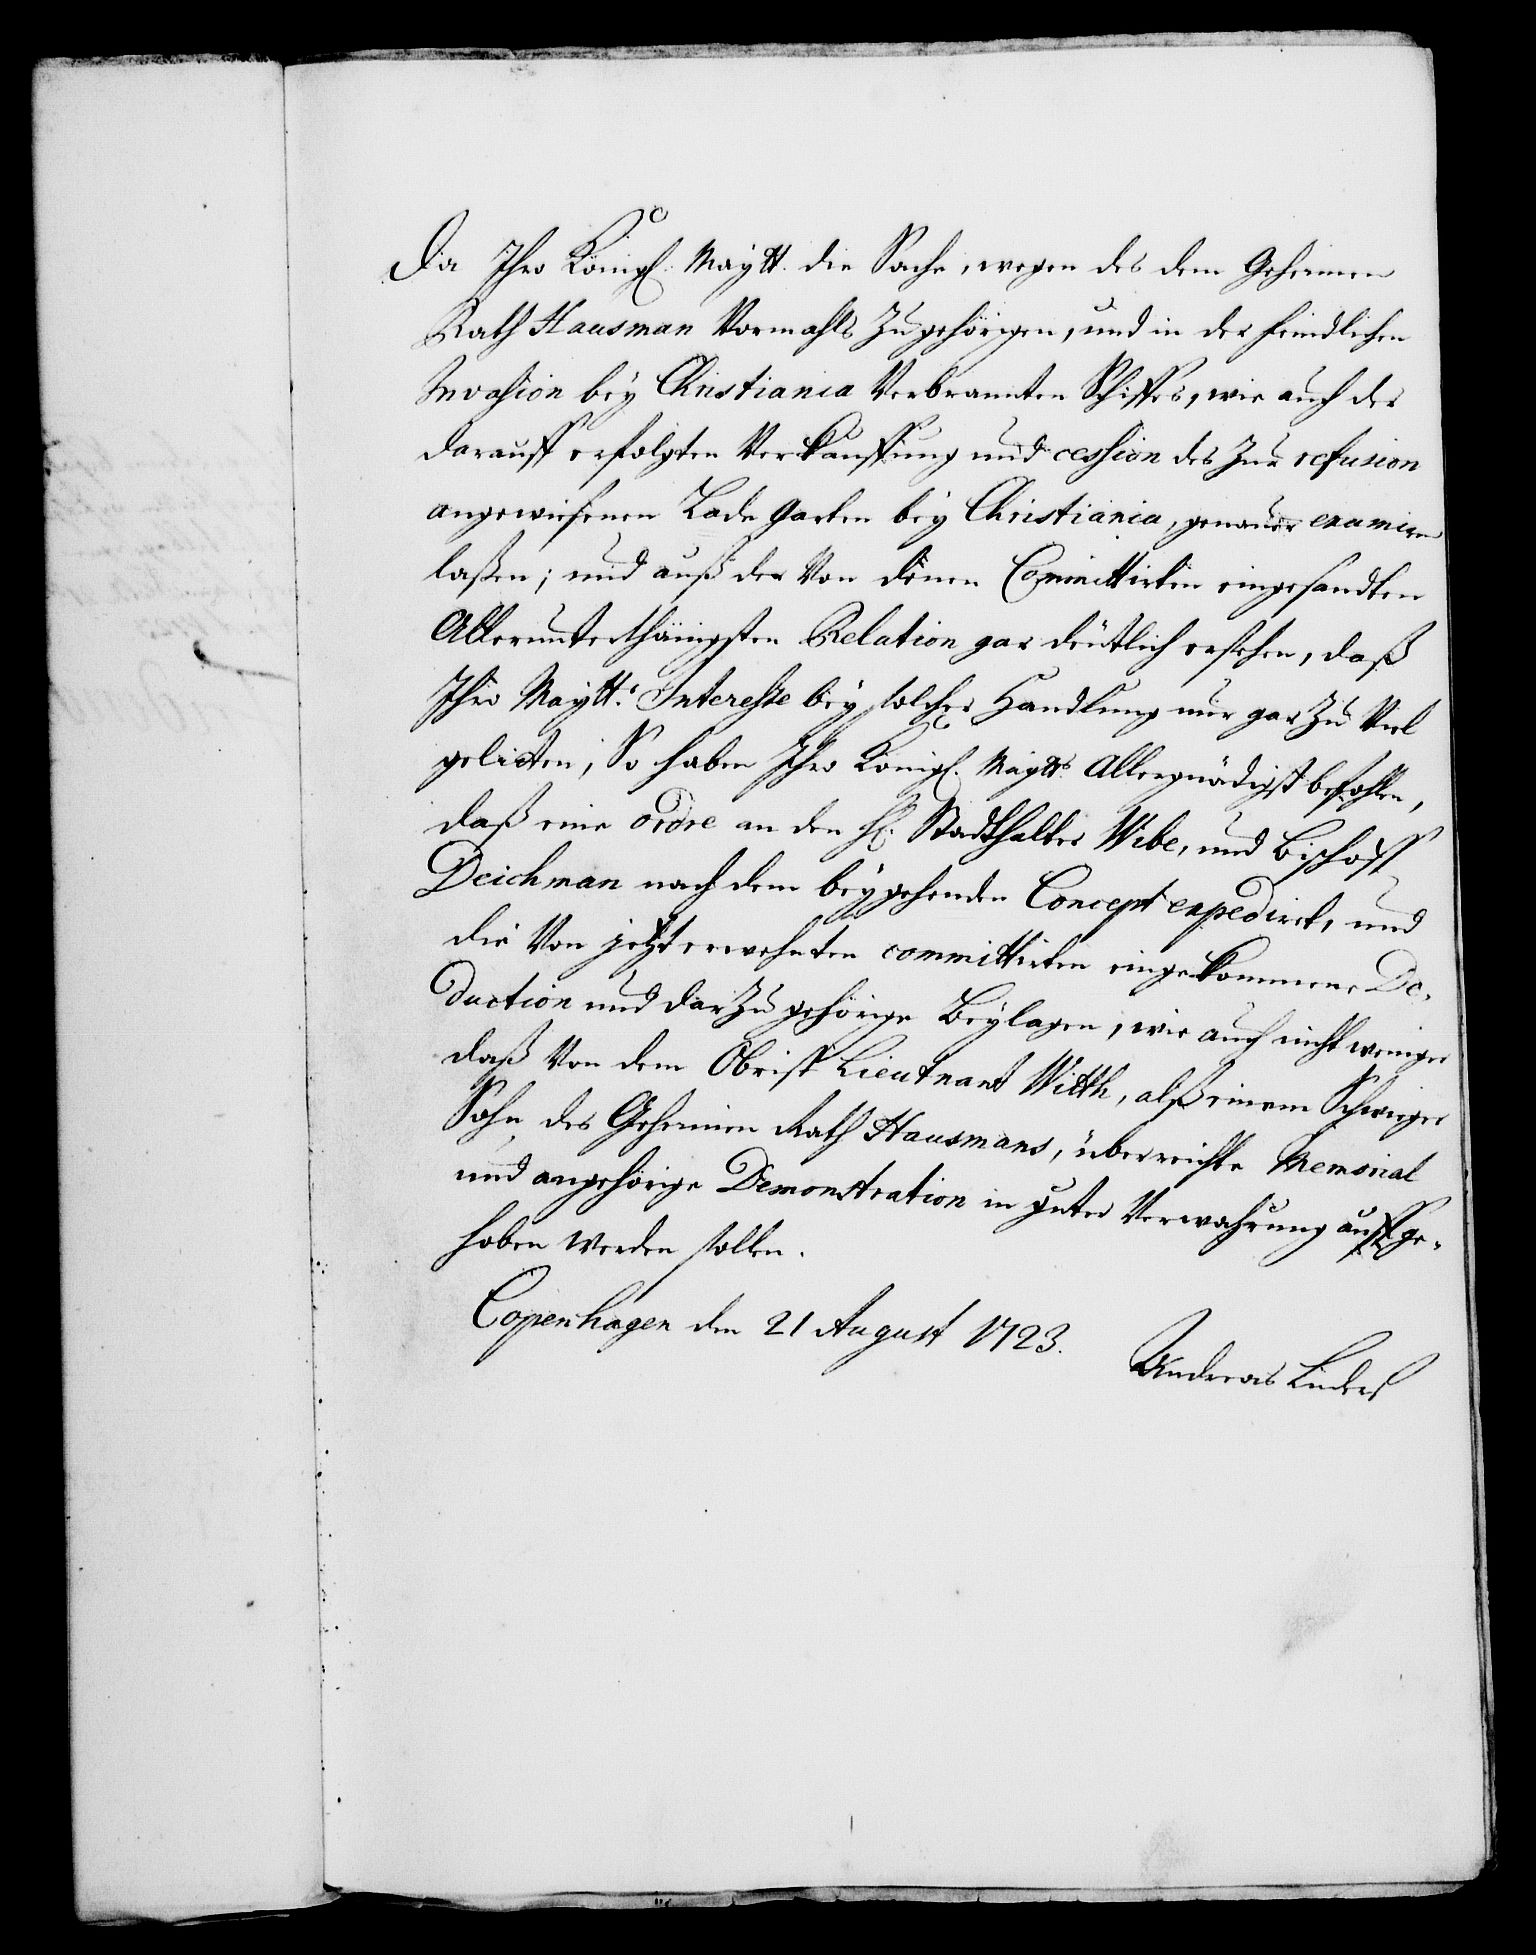 Da Ihro Königl. Maÿtt. die Sache, wegen des dem Geheimen
Rath Hausman Vormahls Zugehörigen, und in der feindlichen
Invasion beÿ Christiania Verbrannten Schiffes, wie auch der
darauff erfolgten Verkauffung und cession des Zur refusion
angewiesenen Lade Garten beÿ Christiania, genauer examiren
laßen; und auß der Von denen Committirten eingesandten
Allerunterthänigsten Relation gar deutlich ersehen, daß
Ihro Maÿtt. Interesse beÿ solcher Handlung nur gar Zu Viel
gelitten; So haben Ihro Königl. Maÿtt. Allergnädigst befohlen,
daß eine ordre an den H. Stadthalter Wibe, und Bischoff
Deichman nach dem beÿgehenden Concept expedirt, und
die Von jetzt erwehnten committirten eingekommene De-
duction und darZu gehörige Beÿlagen, wie auch nicht weniger
daß Von dem Obrist Lieutnant Witth, alß einem Schwieger
Sohn des Geheimen Rath Hausmans, überreichte Memorial
und angehörige Demonstration in guter Verwahrung auffge-
hoben werden sollen.
Copenhagen den 21 August 1723.
Andreas Linders